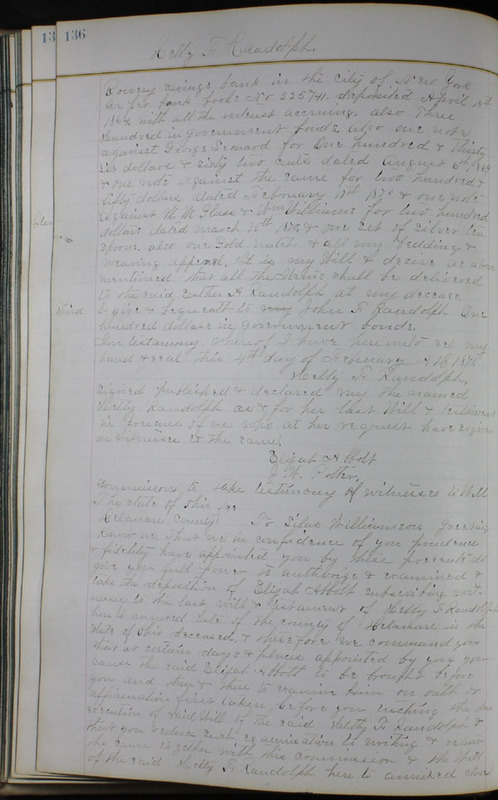 13 136
Hetty F Randolph
Bowery Savings bank in the City of New York
as per bank book No 225741. deposited April
1864 with all the interest accruing. also Three
Hundred in government bonds. also one note
against George Leonard for One hundred & thirty
six dollars & sixty two cents dated August 6th 1869
& one note against the same for two hundred &
fifty dollars dated February & one note
against & Wm Williams for two hundred
dollars dated March & one set of Silver tea
spoons. also one Gold watch & all my bedding &
wearing apperel. it is my Will & desire as above
mentioned that all the Items shall be delivered
to the said Esther A Randolph at my decease
Third I give & bequeath to my John F Randolph One
hundred dollars in government bonds.
In testimony whereof I have here unto set my
hand & seal this 4th day of February
Hetty F Randolph
Signed published & declared by the named
Hetty Randolph as & for her last Will & testament
in presence of us who at her request have signed
as witnesses to the same.
Elijah Abbott
Potter
Commission to take testimony of witnesses to Will
The State of Ohio
Delaware County To Silas Williamson Greeting
Know ye that we in confidence of your prudence
& fidelity have appointed you by these presents do
give you full power & authority & examined &
take the deposition of Elijah Abbott subscribing wit-
ness to the last will & testament of Hetty F Randolph
here to annexed late of the county of Delaware in the
State of Ohio deceased, & therefore we command you
that at certain days & places appointed by you you
cause the said Elijah Abbott to be brought before
you and then & there to examine him on oath or
affirmation first taken before you touching the due
execution of said Will of the said Hetty F Randolph &
that you reduce such examination to writing & return
the same together with this commission & the Will
of the said Hetty F Randolph here to annexed